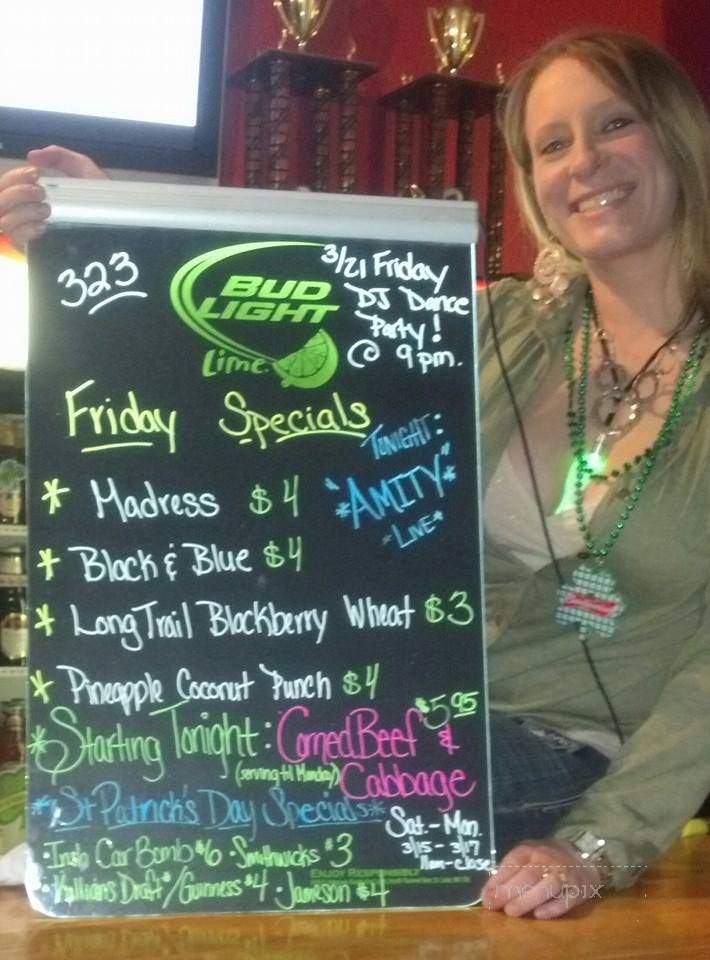 323
BUD
LIGHT
Lime
3/21 Friday
DJ Dance
Party!
@ 9pm.
Friday Specials
TONIGHT:
*"AMITY"*
*LIVE*
* Madress $4
* Black & Blue $4
* Long Trail Blackberry Wheat $3
* Pineapple Coconut Punch $4
* Starting Tonight: Corned Beef & Cabbage $5.95
(serving til Monday)
*St Patrick's Day Specials*
Sat.-Mon.
3/15 - 3/17
11am-close
· Irish Car Bomb $6 · Smithwicks $3
· Killian's Draft*/Guinness $4 · Jameson $4
ENJOY RESPONSIBLY
Budweiser
menupix